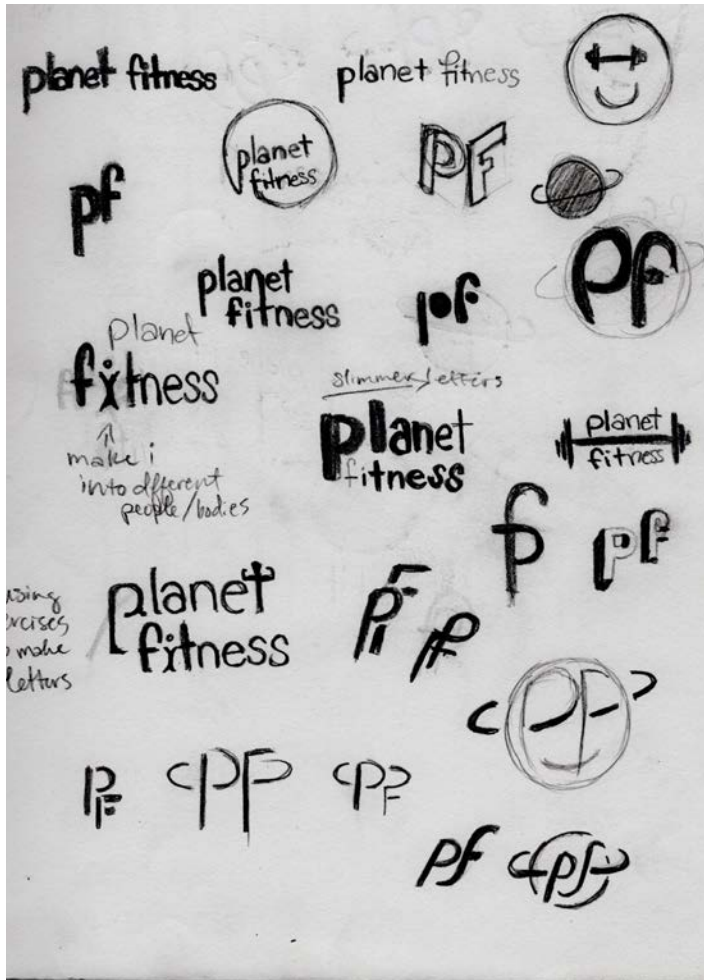 planet fitness
planet fitness
planet
fitness
PF
pf
pf
planet
fitness
pf
planet
fitness
make i
into different
people/bodies
slimmer letters
planet
fitness
planet
fitness
pf
pf
using
make
letters
planet
fitness
PF
pf
PF
PF
PF
PF
pf
pf